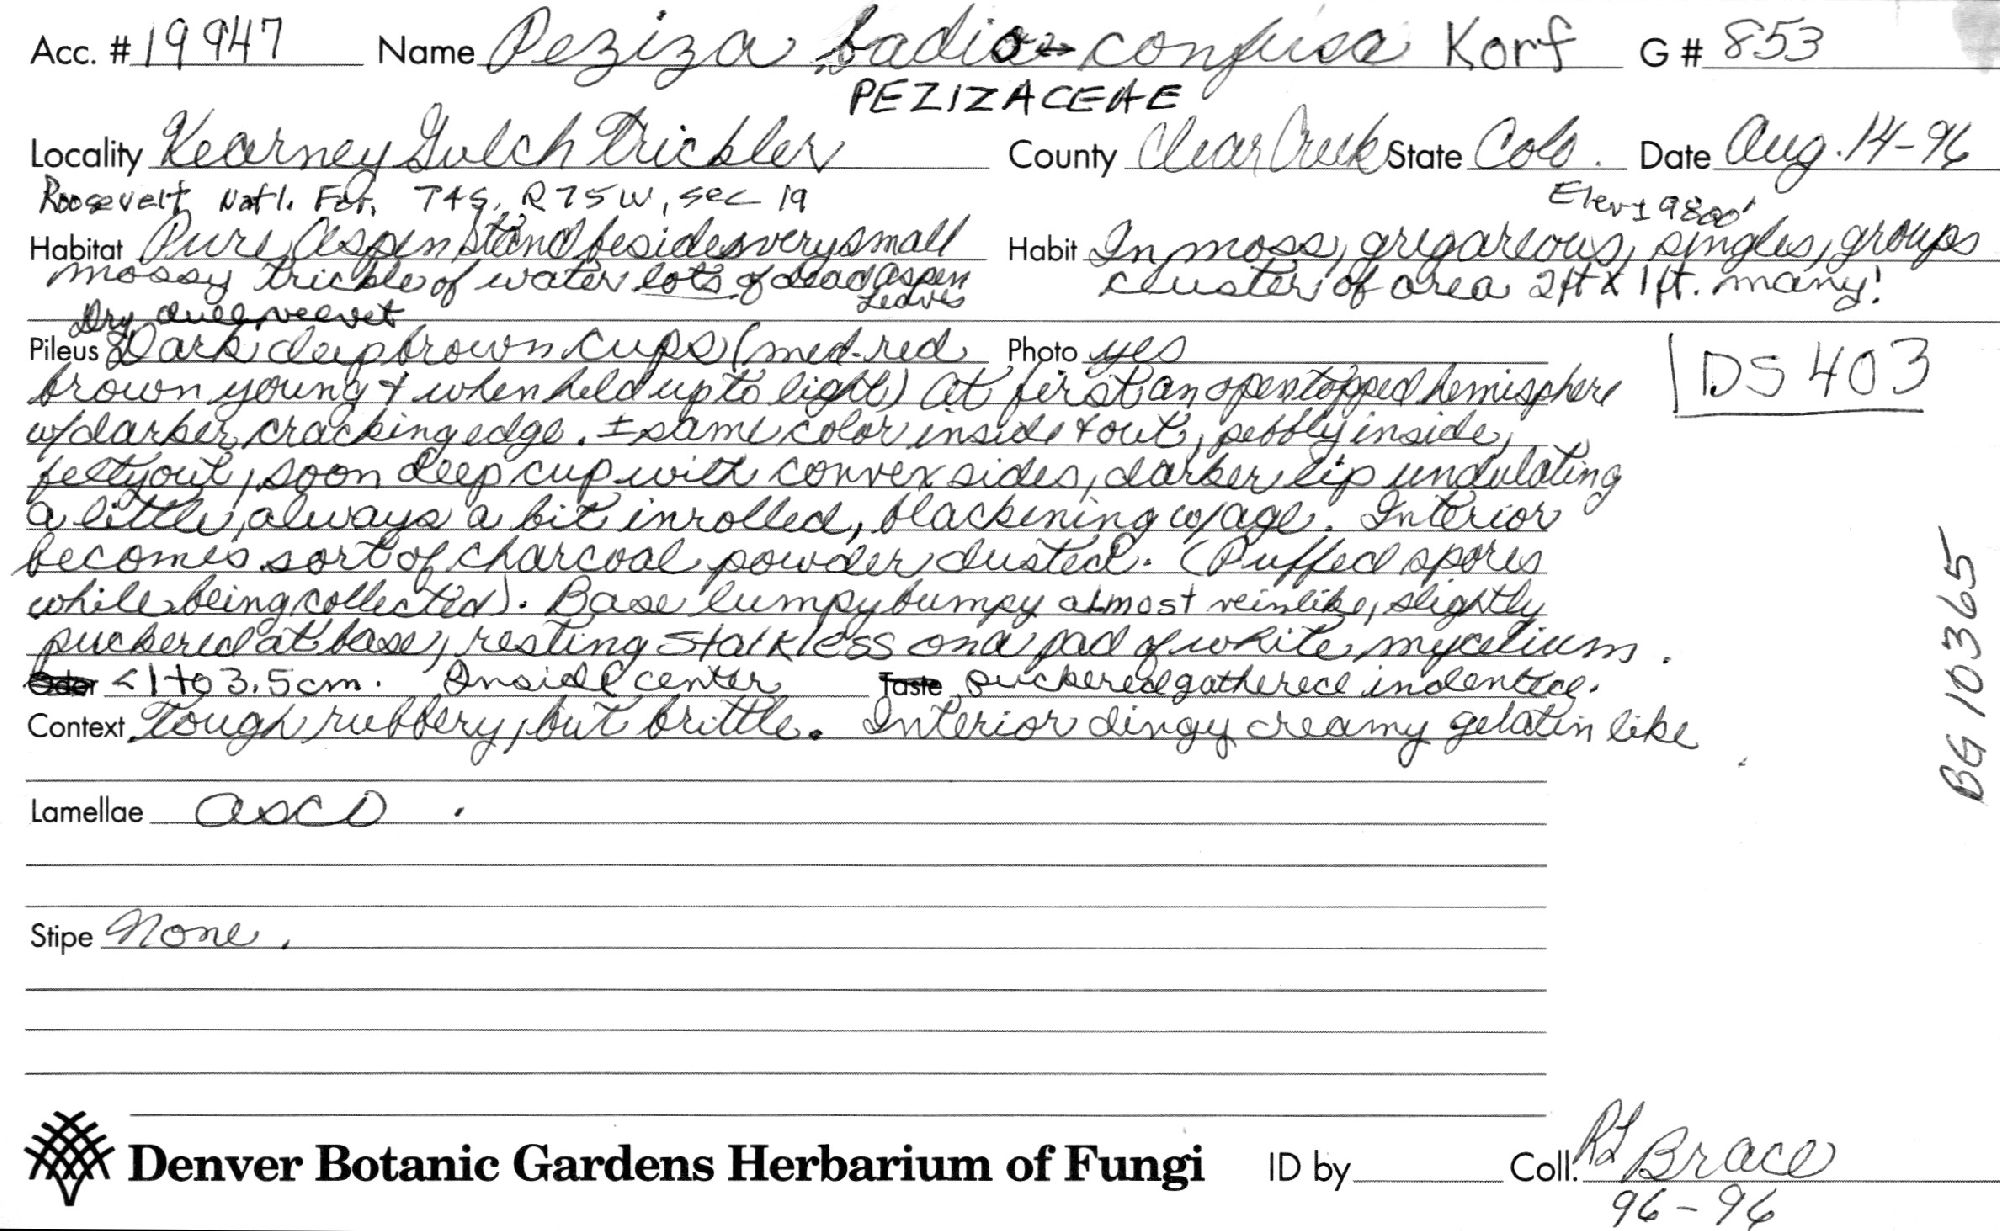 Acc. # 19947 Name Peziza badio-confusa Korf G # 853
PEZIZACEAE
Locality Kearney Gulch Trickler County Clear Creek State Colo. Date Aug. 14-96
Roosevelt Natl. For. T4S, R75W, sec 19 Elev ± 9800'
Habitat Pure Aspen Stand beside very small Habit In moss, gregareous, singles, groups
mossy trickle of water lots of dead aspen leaves cluster of area 2ft x 1ft. many!
Dry dull velvet
Pileus Dark deep brown cups (med-red Photo yes
brown young & when held up to light) At first an open topped hemisphere DS 403
w/darker cracking edge. ± same color inside & out, pebbly inside,
felty out, soon deep cup with convex sides, darker lip undulating
a little, always a bit inrolled, blackening w/age. Interior
becomes sort of charcoal powder dusted. (Puffed spores
while being collected). Base lumpy bumpy almost veinlike, slightly
puckered at base, resting stalkless on a pad of white mycelium.
Odor <1 to 3.5cm. Inside center Taste puckered gathered indented.
Context Tough rubbery, but brittle. Interior dingy creamy gelatin like
BG 10365
Lamellae asco.
Stipe None.
Denver Botanic Gardens Herbarium of Fungi ID by Coll. RL Brace
96-96